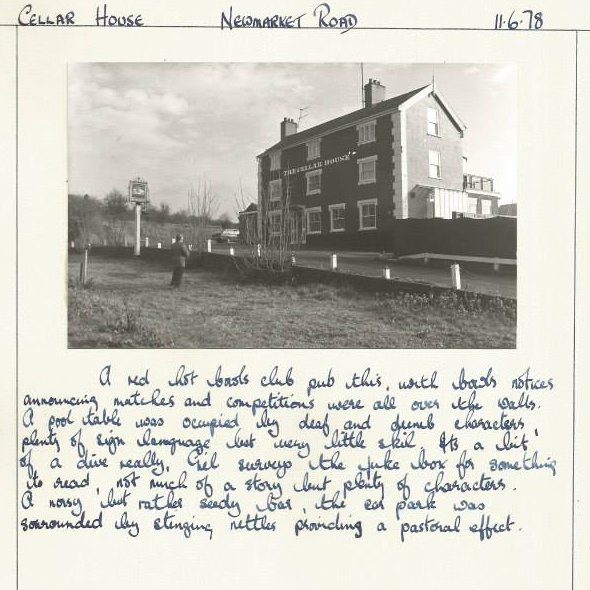 CELLAR HOUSE NEWMARKET ROAD 11·6·78
THE CELLAR HOUSE
A red hot bowls club pub this, with bowls notices
announcing matches and competitions were all over the walls.
A pool table was occupied by deaf and dumb characters,
plenty of sign language but very little skil. It's a bit
of a dive really. Gil surveys the juke box for something
to read, not much of a story but plenty of characters.
A noisy but rather seedy bar, the car park was
sorrounded by stinging nettles providing a pastoral effect.